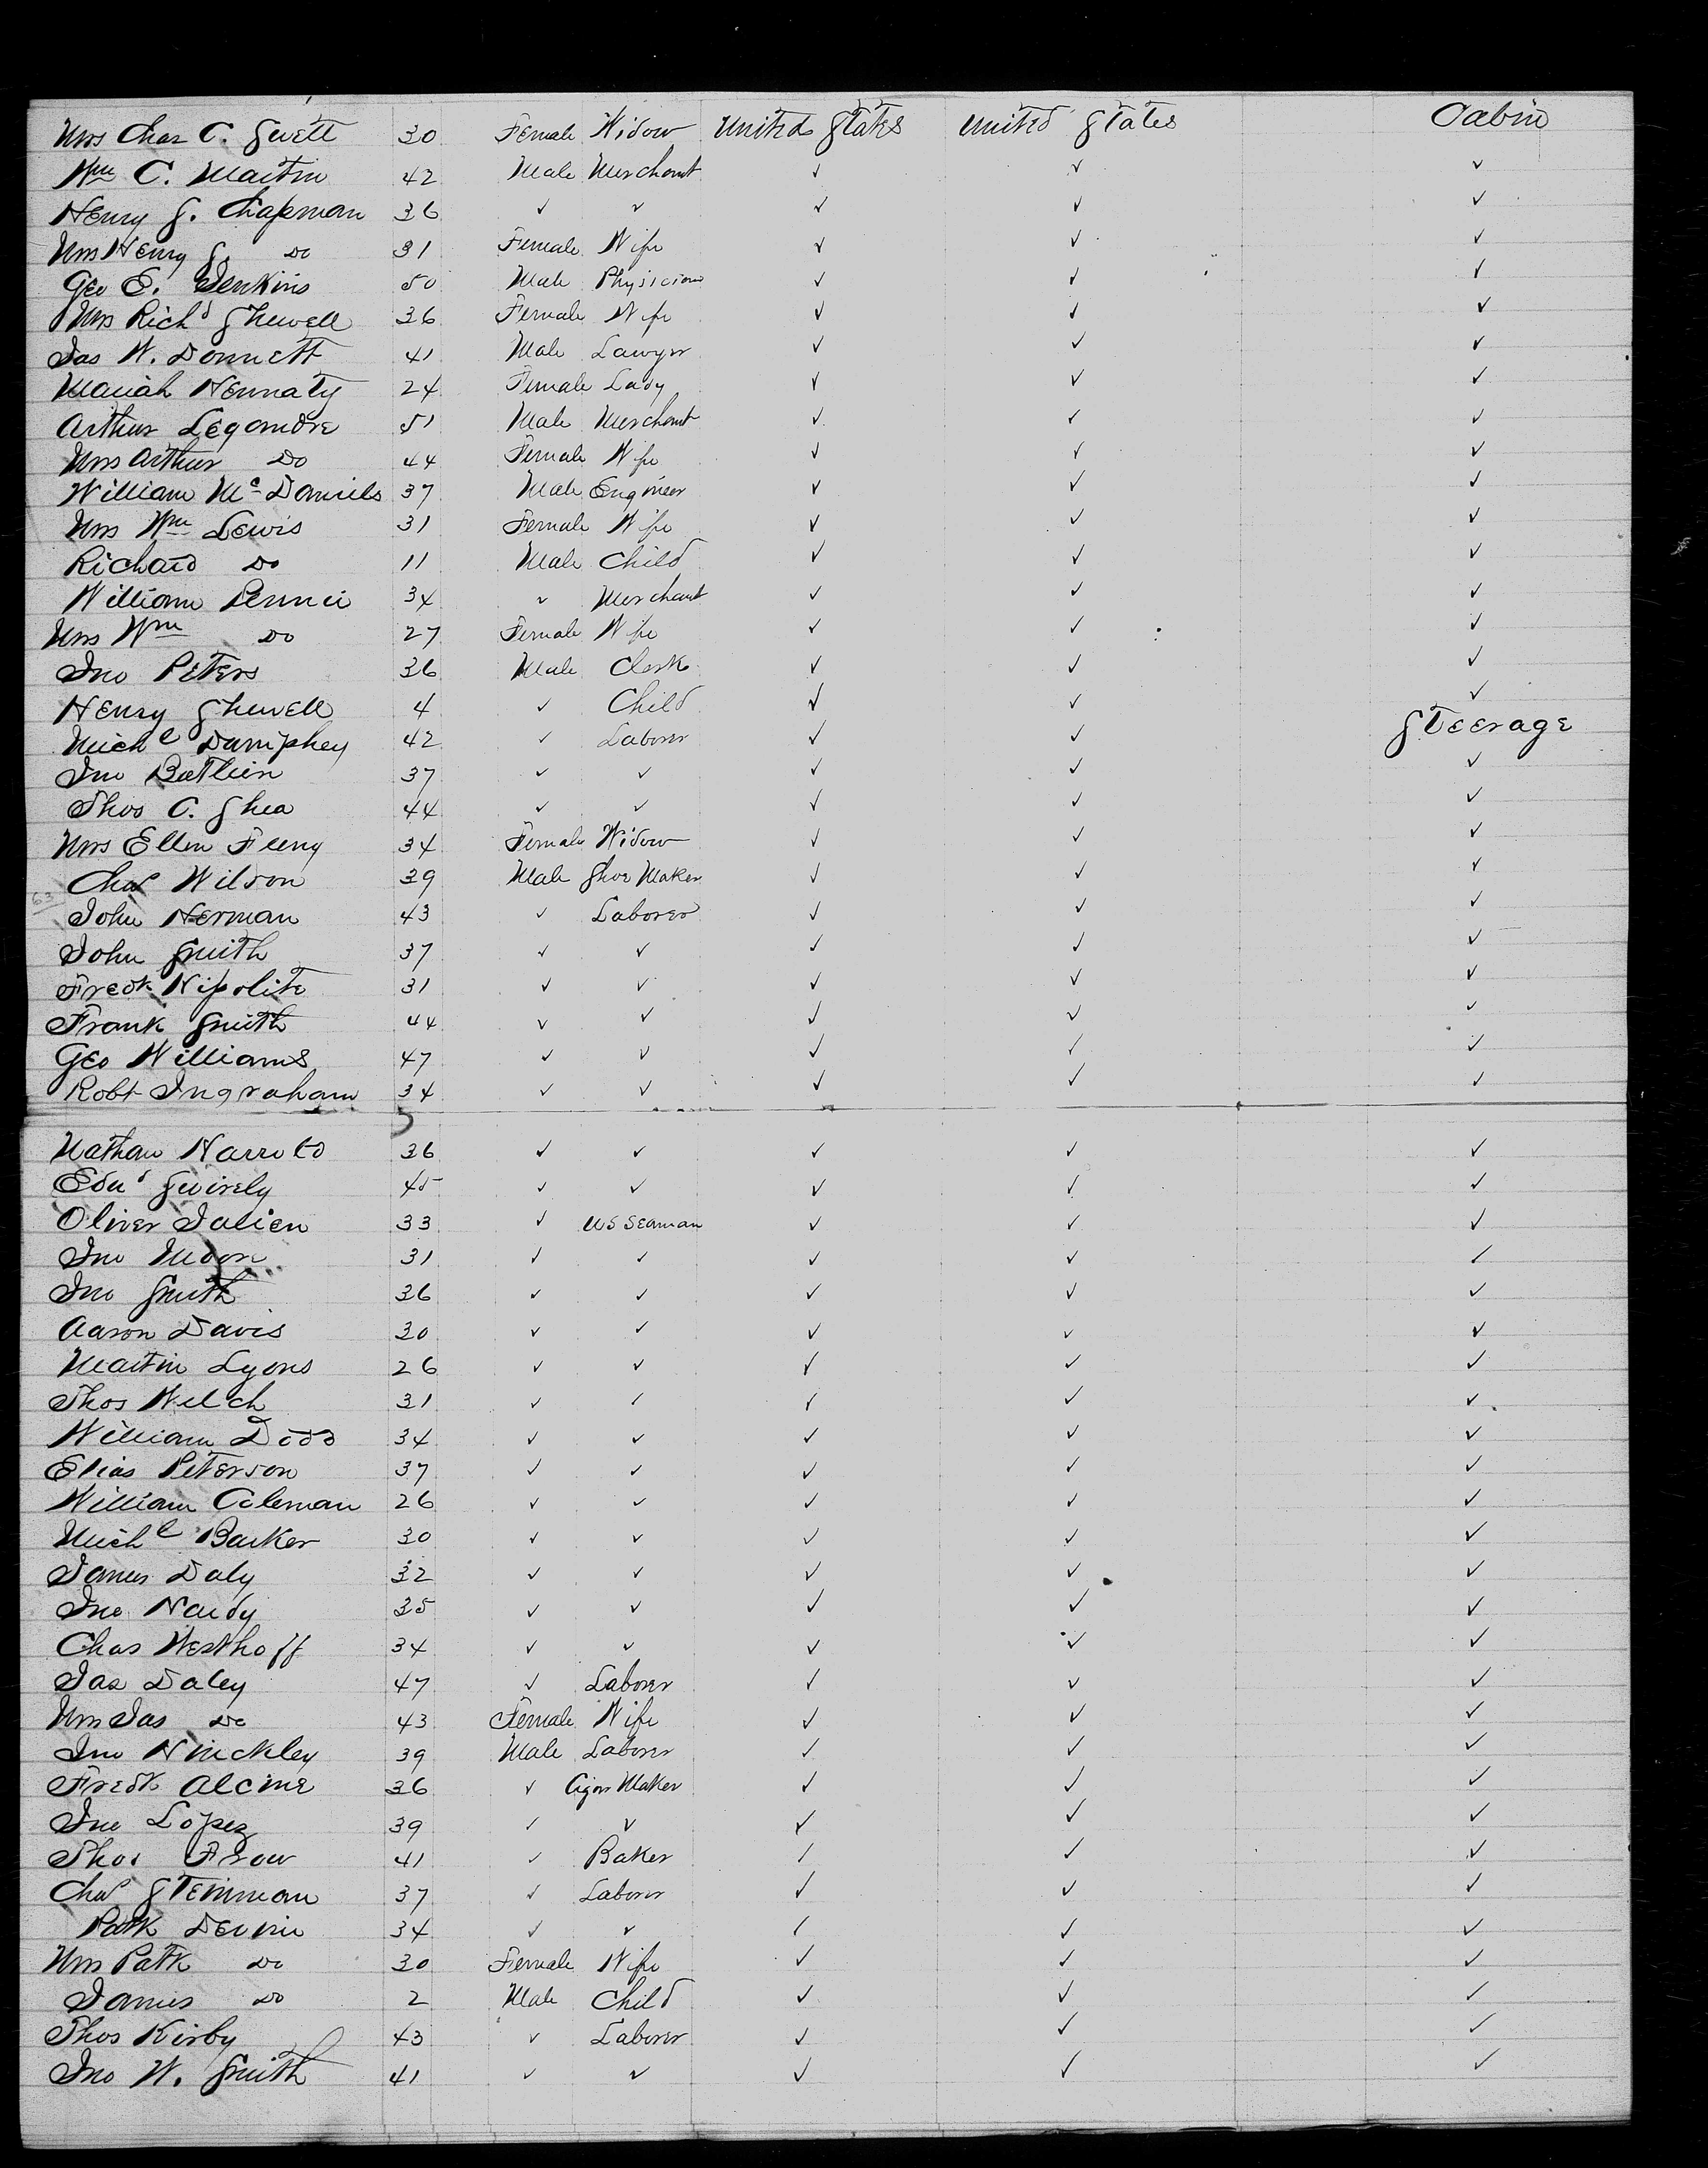 Mrs Chas C. Swett 30 Female Widow United States United States Cabin
Wm C. Martin 42 Male Merchant ✓ ✓ ✓
Henry S. Chapman 36 ✓ ✓ ✓ ✓ ✓
Mrs Henry S. Do 31 Female Wife ✓ ✓ ✓
Geo E. Jenkins 50 Male Physician ✓ ✓ ✓
Mrs Richd Shewell 36 Female Wife ✓ ✓ ✓
Jas W. Donnett 41 Male Lawyer ✓ ✓ ✓
Mariah Hennaty 24 Female Lady ✓ ✓ ✓
Arthur Legomdre 51 Male Merchant ✓ ✓ ✓
Mrs Arthur Do 44 Female Wife ✓ ✓ ✓
William Mc Daniels 37 Male Engineer ✓ ✓ ✓
Mrs Wm Lewis 31 Female Wife ✓ ✓ ✓
Richard Do 11 Male Child ✓ ✓ ✓
William 34 ✓ Merchant ✓ ✓ ✓
Mrs Wm Do 27 Female Wife ✓ ✓ ✓
Jno Peters 36 Male Clerk ✓ ✓ ✓
Henry Shewell 4 ✓ Child ✓ ✓ ✓
Michl Dumphey 42 ✓ Laborer ✓ ✓ Steerage
Jno 37 ✓ ✓ ✓ ✓ ✓
Thos C. Shea 44 ✓ ✓ ✓ ✓ ✓
Mrs Ellen Feeny 34 Female Widow ✓ ✓ ✓
Chas Wilson 39 Male Shoe Maker ✓ ✓ ✓
John Herman 43 ✓ Laborer ✓ ✓ ✓
John Smith 37 ✓ ✓ ✓ ✓ ✓
Fredk Hipolite 31 ✓ ✓ ✓ ✓ ✓
Frank Smith 44 ✓ ✓ ✓ ✓ ✓
Geo Williams 47 ✓ ✓ ✓ ✓ ✓
Robt Ingraham 34 ✓ ✓ ✓ ✓ ✓
Nathan Harrold 36 ✓ ✓ ✓ ✓ ✓
Edwd Swirely 45 ✓ ✓ ✓ ✓ ✓
Oliver Julien 33 ✓ US Seaman ✓ ✓ ✓
Jno Moore 31 ✓ ✓ ✓ ✓ ✓
Jno Smith 36 ✓ ✓ ✓ ✓ ✓
Aaron Davis 30 ✓ ✓ ✓ ✓ ✓
Martin Lyons 26 ✓ ✓ ✓ ✓ ✓
Thos Welch 31 ✓ ✓ ✓ ✓ ✓
William Dodd 34 ✓ ✓ ✓ ✓ ✓
Elias Peterson 37 ✓ ✓ ✓ ✓ ✓
William Coleman 26 ✓ ✓ ✓ ✓ ✓
Michl Barker 30 ✓ ✓ ✓ ✓ ✓
James Daly 32 ✓ ✓ ✓ ✓ ✓
Jno Hardy 35 ✓ ✓ ✓ ✓ ✓
Chas Westhoff 34 ✓ ✓ ✓ ✓ ✓
Jas Daley 47 ✓ Laborer ✓ ✓ ✓
Mrs Jas Do 43 Female Wife ✓ ✓ ✓
Jno Hinckley 39 Male Laborer ✓ ✓ ✓
Fredk Alcine 36 ✓ Cigar Maker ✓ ✓ ✓
Jno Lopez 39 ✓ ✓ ✓ ✓ ✓
Thos Frow 41 ✓ Baker ✓ ✓ ✓
Chas Steinman 37 ✓ Laborer ✓ ✓ ✓
Patk Devine 34 ✓ ✓ ✓ ✓ ✓
Mrs Patk Do 30 Female Wife ✓ ✓ ✓
James Do 2 Male Child ✓ ✓ ✓
Thos Kirby 43 ✓ Laborer ✓ ✓ ✓
Jno W. Smith 41 ✓ ✓ ✓ ✓ ✓